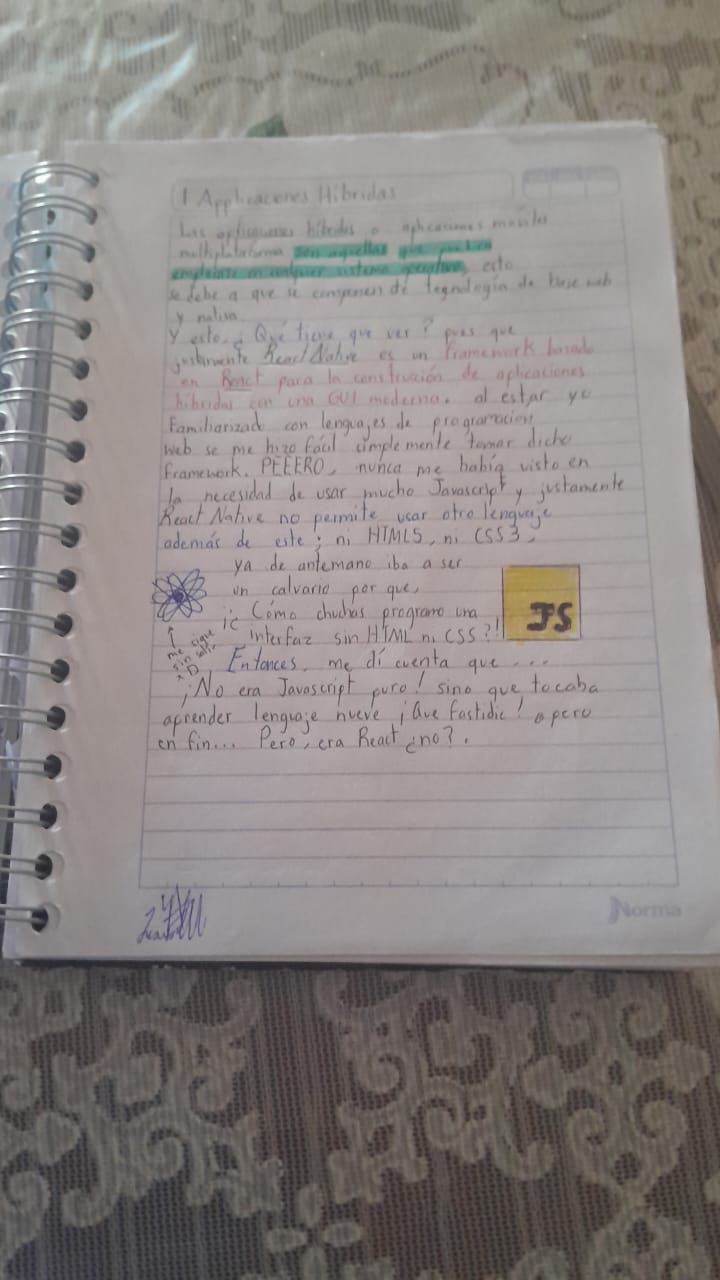 1 Applicaciones Hibridas
Las aplicaciones híbridas o aplicaciones moviles
multiplataforma son aquellas que pueden
emplearse en cualquier sistema operativo, esto
se debe a que se componen de tegnología de base web
y nativa.
Y esto ¿Qué tiene que ver? pues que
justamente React Native es un framework basado
en React para la construción de aplicaciones
hibridas con una GUI moderna. al estar yo
familiarizado con lenguajes de programacion
web se me hizo fácil simplemente tomar dicho
framework. PEEERO, nunca me había visto en
la necesidad de usar mucho Javascript y justamente
React Native no permite usar otro lenguaje
además de este; ni HTML5, ni CSS3,
ya de antemano iba a ser
un calvario por que,
¡¿ Cómo chuchas programo una
JS
interfaz sin HTML ni CSS?!
me sigue
sin salir
Entonces, me dí cuenta que ...
¡No era Javascript puro! sino que tocaba
aprender lenguaje nuevo ¡Que fastidio! pero
en fin... Pero, era React ¿no?.
Norma